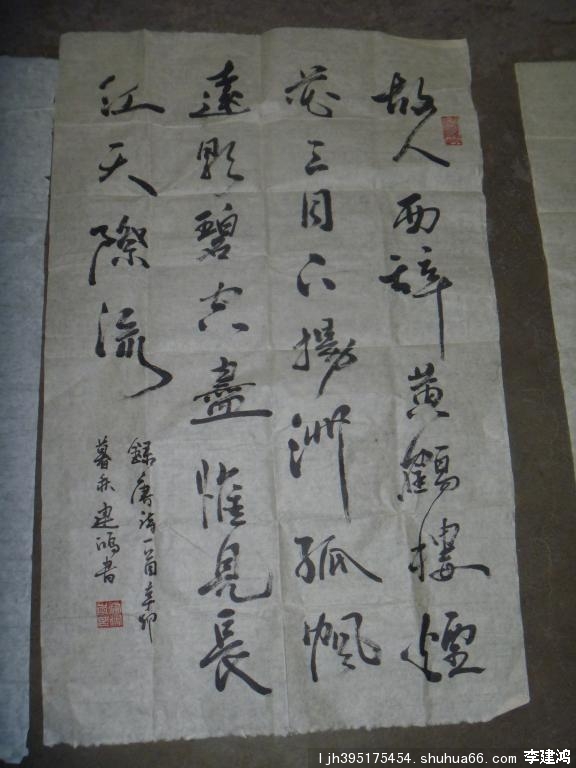 故人西辞黄鶴楼煙
花三月下揚洲孤帆
遠影碧空盡惟見長
江天際流
錄唐詩一首辛卯
暮秋建鴻書
ljh395175454.shuhua66.com 李建鸿